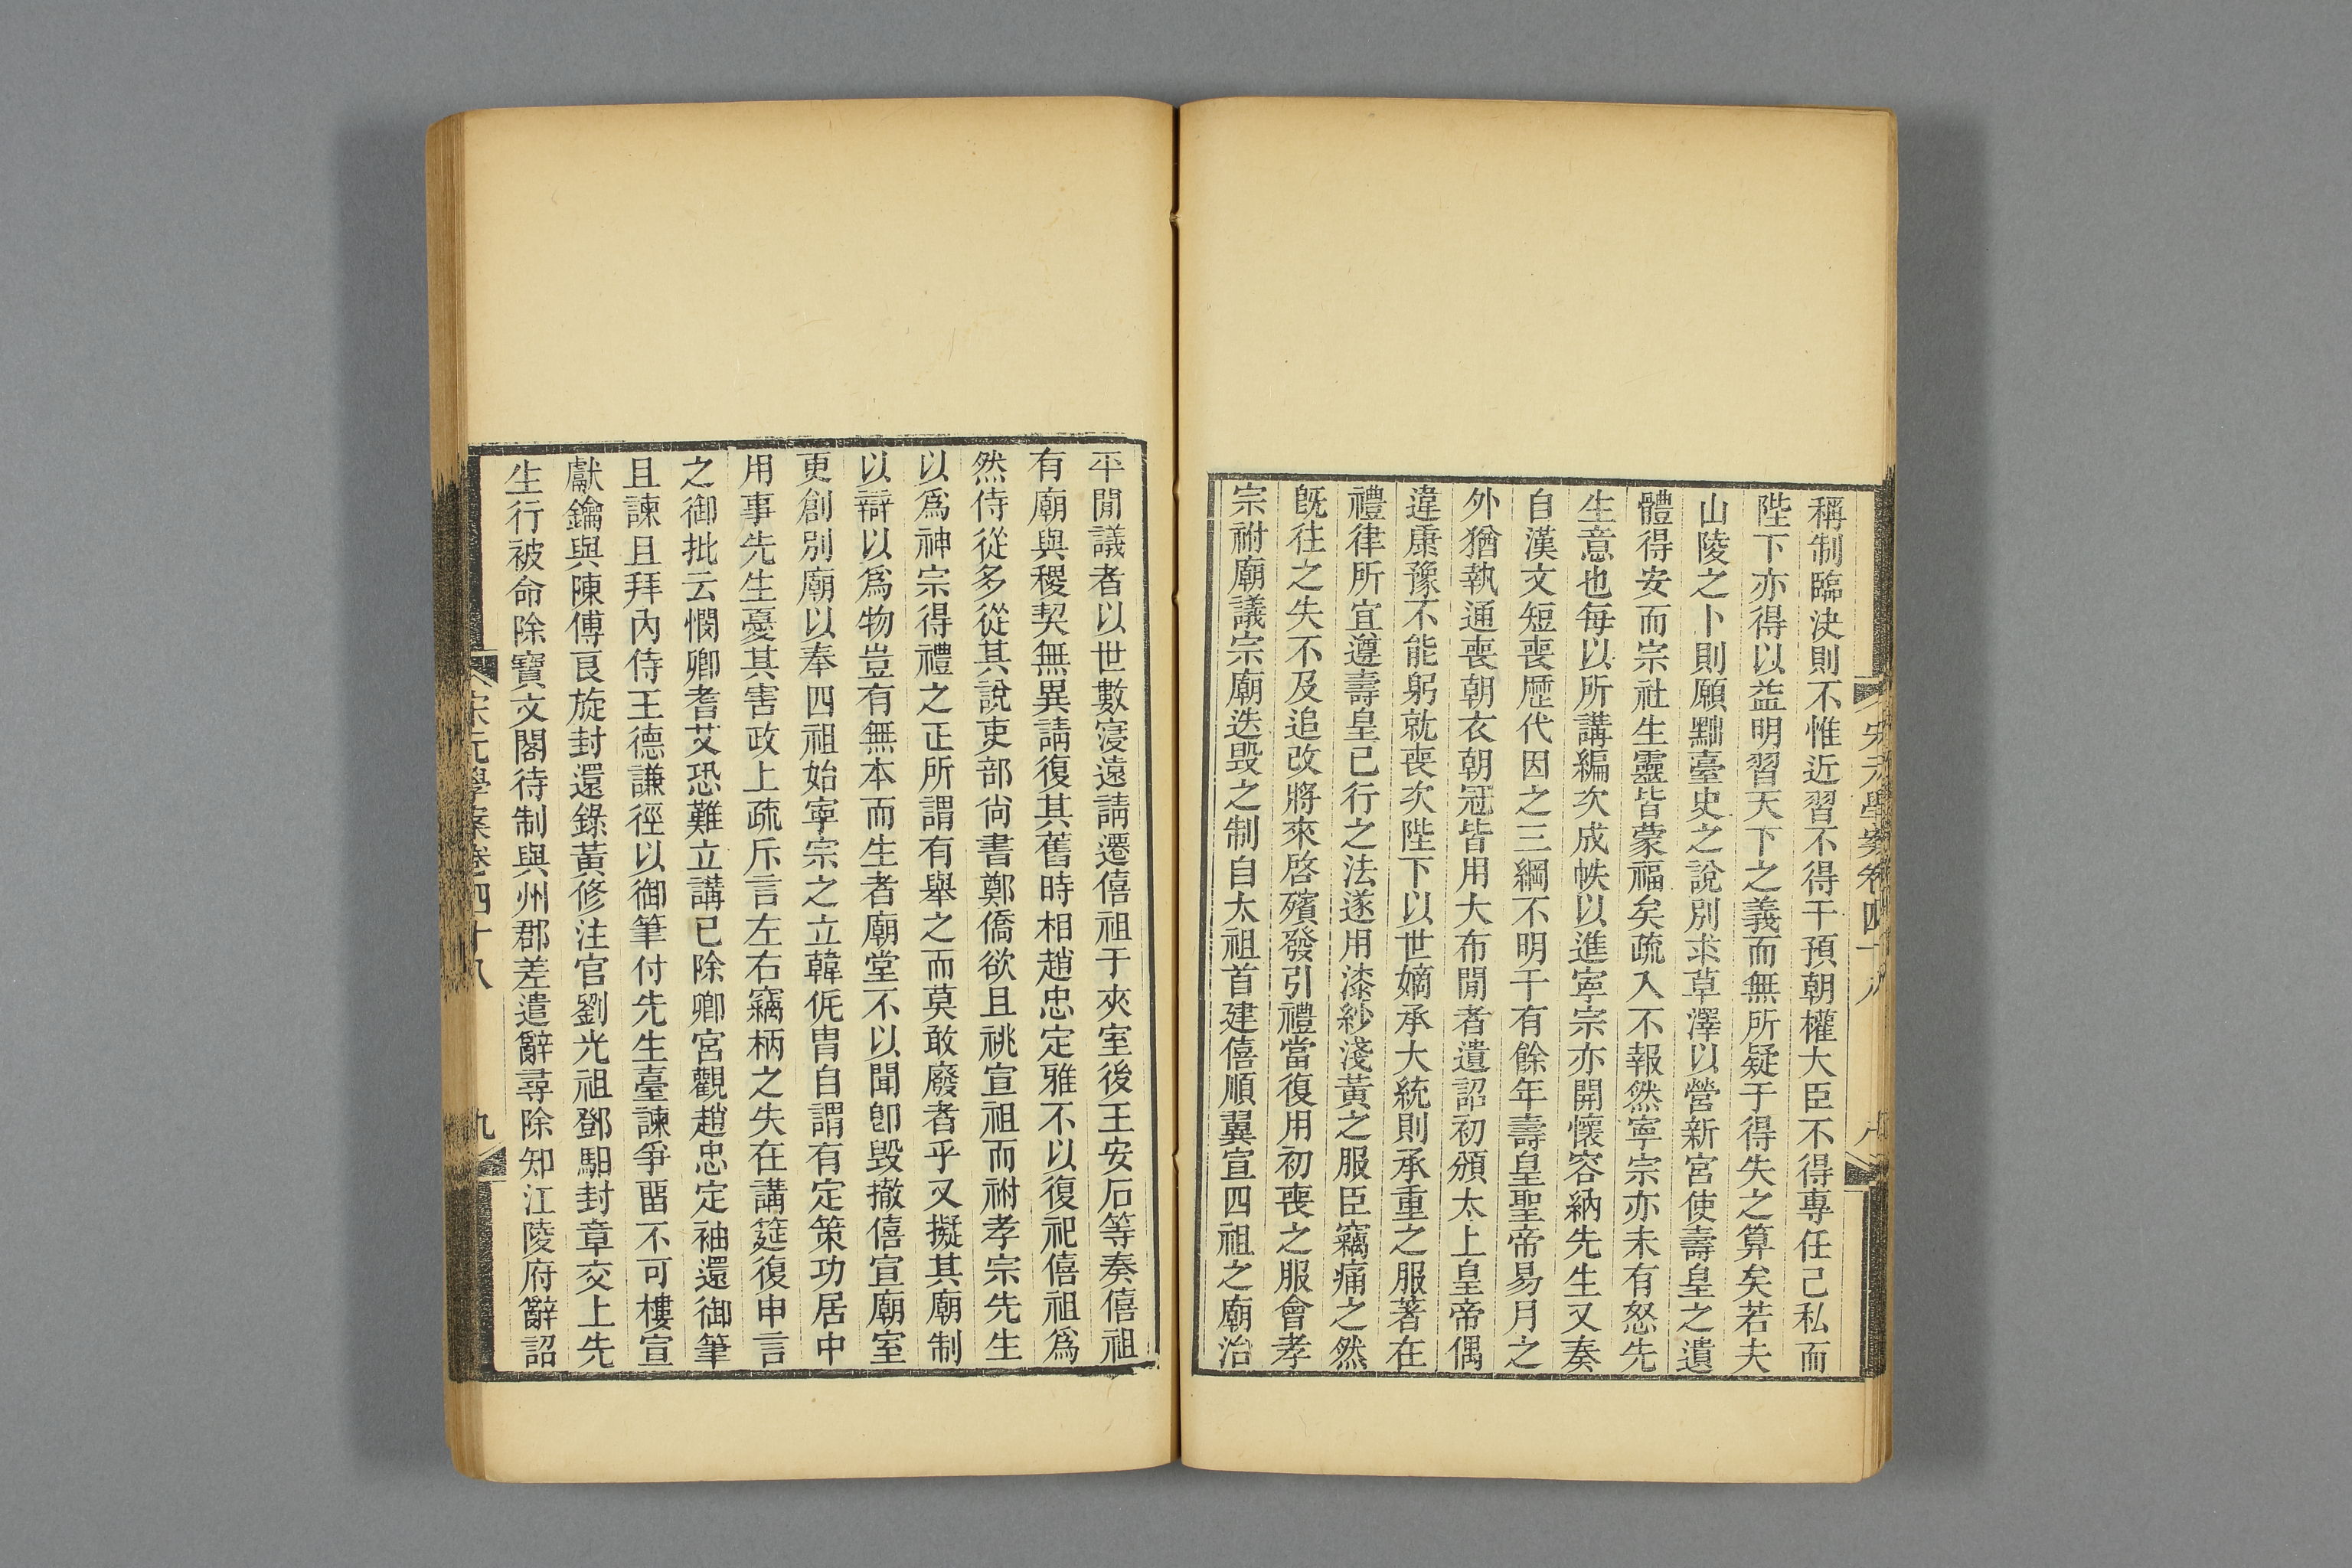 宋元學案卷四十八
八
稱制臨決則不惟近習不得干預朝權大臣不得專任己私而
陛下亦得以益明習天下之義而無所疑于得失之算矣若夫
山陵之卜則願黜臺史之說別求草澤以營新宮使壽皇之遺
體得安而宗社生靈皆蒙福矣疏入不報然寧宗亦未有怒先
生意也每以所講編次成帙以進寧宗亦開懷容納先生又奏
自漢文短喪歷代因之三綱不明千有餘年壽皇聖帝易月之
外猶執通喪朝衣朝冠皆用大布閒者遺詔初頒太上皇帝偶
違康豫不能躬就喪次陛下以世嫡承大統則承重之服著在
禮律所宜遵壽皇已行之法遂用漆紗淺黃之服臣竊痛之然
既往之失不及追改將來啓殯發引禮當復用初喪之服會孝
宗祔廟議宗廟迭毀之制自太祖首建僖順翼宣四祖之廟治
平閒議者以世數寖遠請遷僖祖于夾室後王安石等奏僖祖
有廟與稷契無異請復其舊時相趙忠定雅不以復祀僖祖爲
然侍從多從其說吏部尚書鄭僑欲且祧宣祖而祔孝宗先生
以爲神宗得禮之正所謂有舉之而莫敢廢者乎又擬其廟制
以辯以爲物豈有無本而生者廟堂不以聞卽毀撤僖宣廟室
更創別廟以奉四祖始寧宗之立韓侂胄自謂有定策功居中
用事先生憂其害政上疏斥言左右竊柄之失在講筵復申言
之御批云憫卿耆艾恐難立講已除卿宮觀趙忠定袖還御筆
且諫且拜內侍王德謙徑以御筆付先生臺諫爭畱不可樓宣
獻鑰與陳傅良旋封還錄黃修注官劉光祖鄧馹封章交上先
生行被命除寶文閣待制與州郡差遣辭尋除知江陵府辭詔
宋元學案卷四十八
九